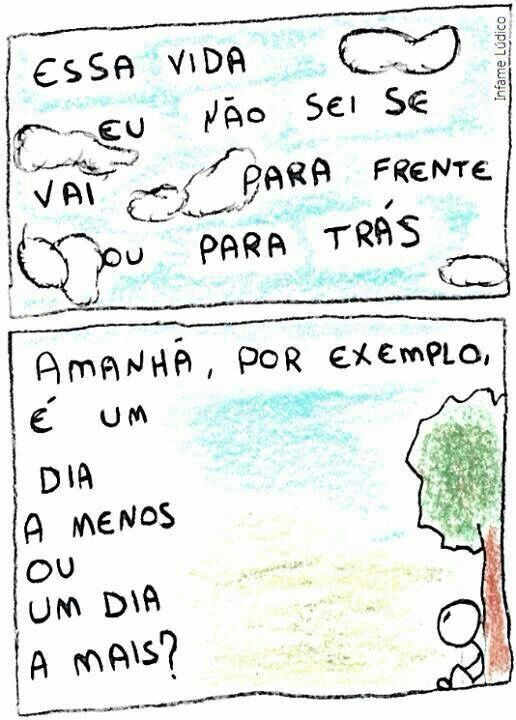 Infame Lúdico
ESSA VIDA
EU NÃO SEI SE
VAI PARA FRENTE
OU PARA TRÁS
AMANHÃ, POR EXEMPLO,
É UM
DIA
A MENOS
OU
UM DIA
A MAIS?